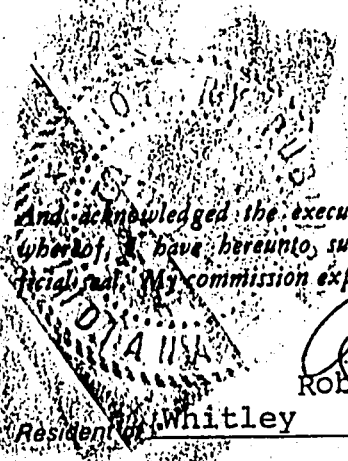 NOTARY PUBLIC
INDIANA
And acknowledged the execu
whereof, I have hereunto, su
ficial seal. My commission exp
Rob
Resident of Whitley